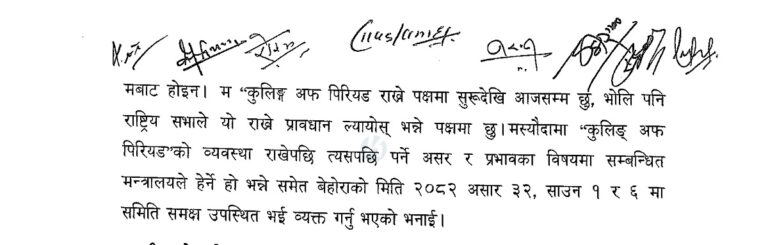 मबाट होइन। म “कुलिङ्ग अफ पिरियड राख्ने पक्षमा सुरूदेखि आजसम्म छु, भोलि पनि
राष्ट्रिय सभाले यो राख्ने प्रावधान ल्यायोस् भन्ने पक्षमा छु।मस्यौदामा “कुलिङ्ग अफ
पिरियड”को व्यवस्था राखेपछि त्यसपछि पर्ने असर र प्रभावका विषयमा सम्बन्धित
मन्त्रालयले हेर्ने हो भन्ने समेत बेहोराको मिति २०८२ असार ३२, साउन १ र ६ मा
समिति समक्ष उपस्थित भई व्यक्त गर्नु भएको भनाई।